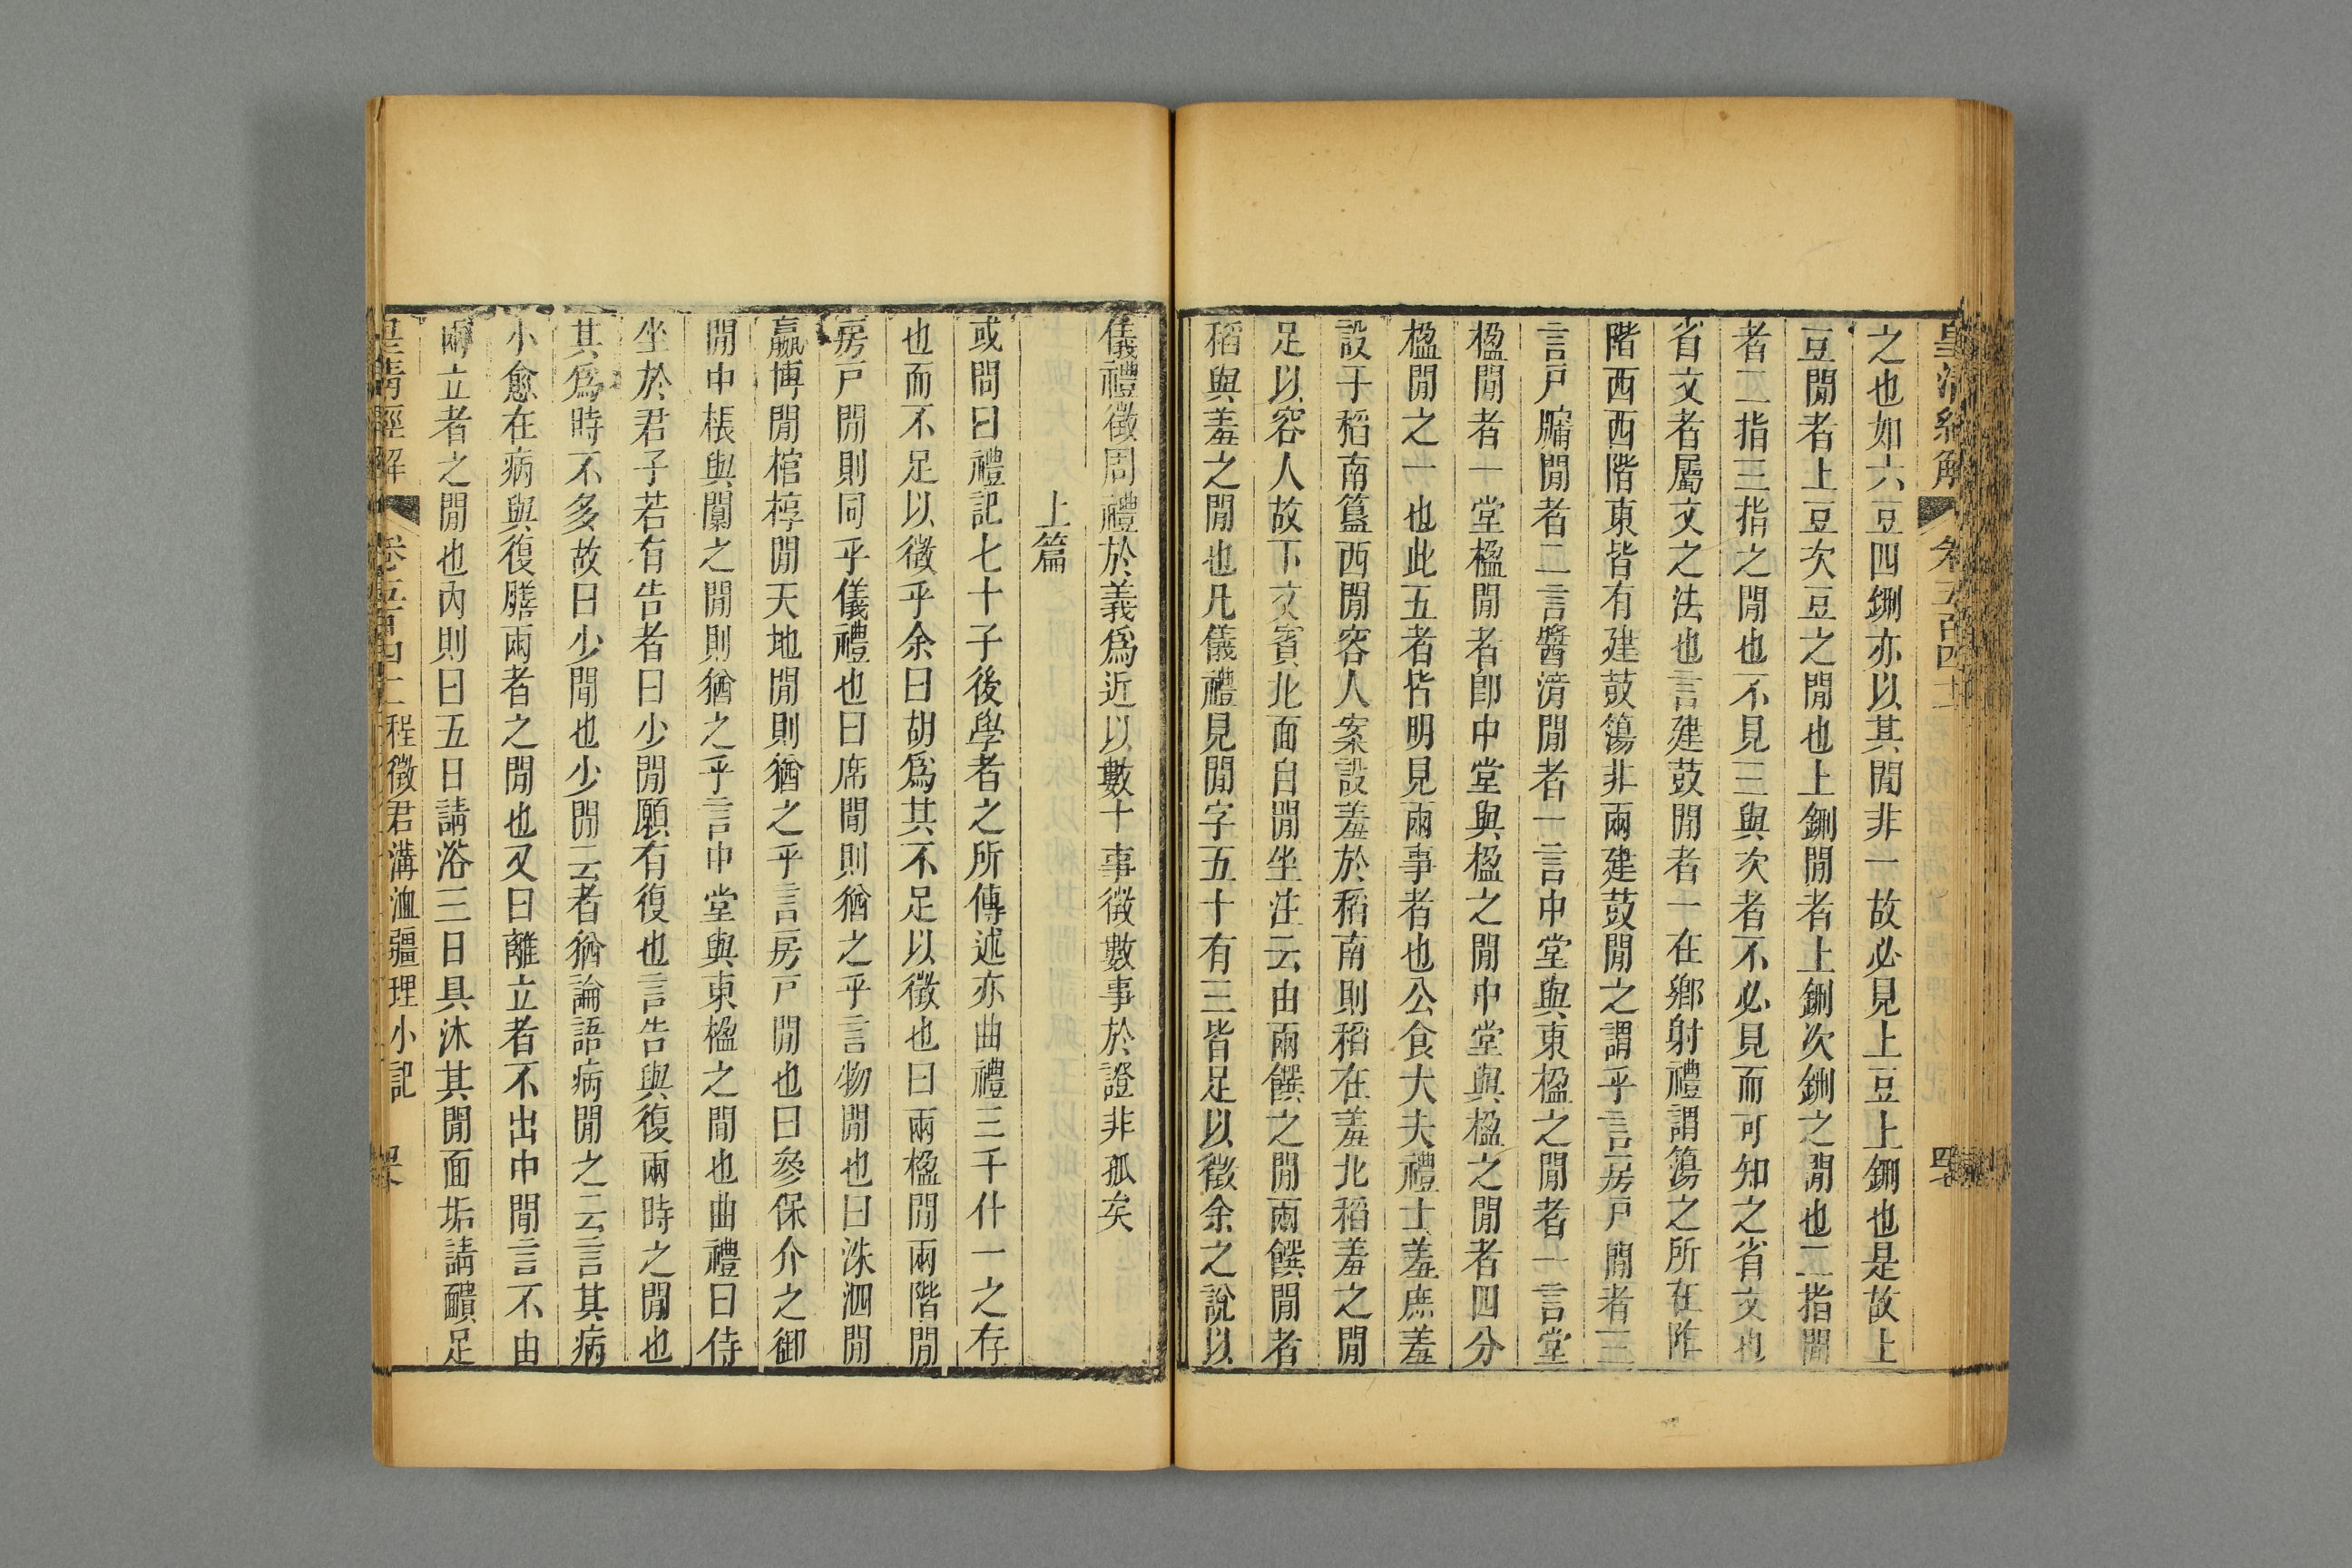 皇清經解
卷五百四十二
之也如六豆四鉶亦以其閒非一故必見上豆上鉶也是故上
豆閒者上豆次豆之閒也上鉶閒者上鉶次鉶之閒也二指閒
者二指三指之閒也不見三與次者不必見而可知之省文也
省文者屬文之法也言建鼓閒者一在鄉射禮謂簜之所在阼
階西西階東皆有建鼓簜非兩建鼓閒之謂乎言房戶閒者三
言戶牖閒者二言醬湆閒者一言中堂與東楹之閒者一言堂
楹閒者一堂楹閒者卽中堂與楹之閒中堂與楹之閒者四分
楹閒之一也此五者皆明見兩事者也公食大夫禮士羞庶羞
設于稻南簋西閒容人案設羞於稻南則稻在羞北稻羞之閒
足以容人故下文賓北面自閒坐注云由兩饌之閒兩饌閒者
稻與羞之閒也凡儀禮見閒字五十有三皆足以徵余之說以
儀禮徵周禮於義爲近以數十事徵數事於證非孤矣
上篇
或問曰禮記七十子後學者之所傳述亦曲禮三千什一之存
也而不足以徵乎余曰胡爲其不足以徵也曰兩楹閒兩階閒
房戶閒則同乎儀禮也曰席閒則猶之乎言物閒也曰洙泗閒
嬴博閒棺椁閒天地閒則猶之乎言房戶閒也曰參保介之御
閒中棖與闑之閒則猶之乎言中堂與東楹之閒也曲禮曰侍
坐於君子若有告者曰少閒願有復也言告與復兩時之閒也
其爲時不多故曰少閒也少閒云者猶論語病閒之云言其病
小愈在病與復膳兩者之閒也又曰離立者不出中閒言不由
兩立者之閒也內則曰五日請浴三日具沐其閒面垢請靧足
皇清經解
卷五百四十二
程徵君溝洫疆理小記